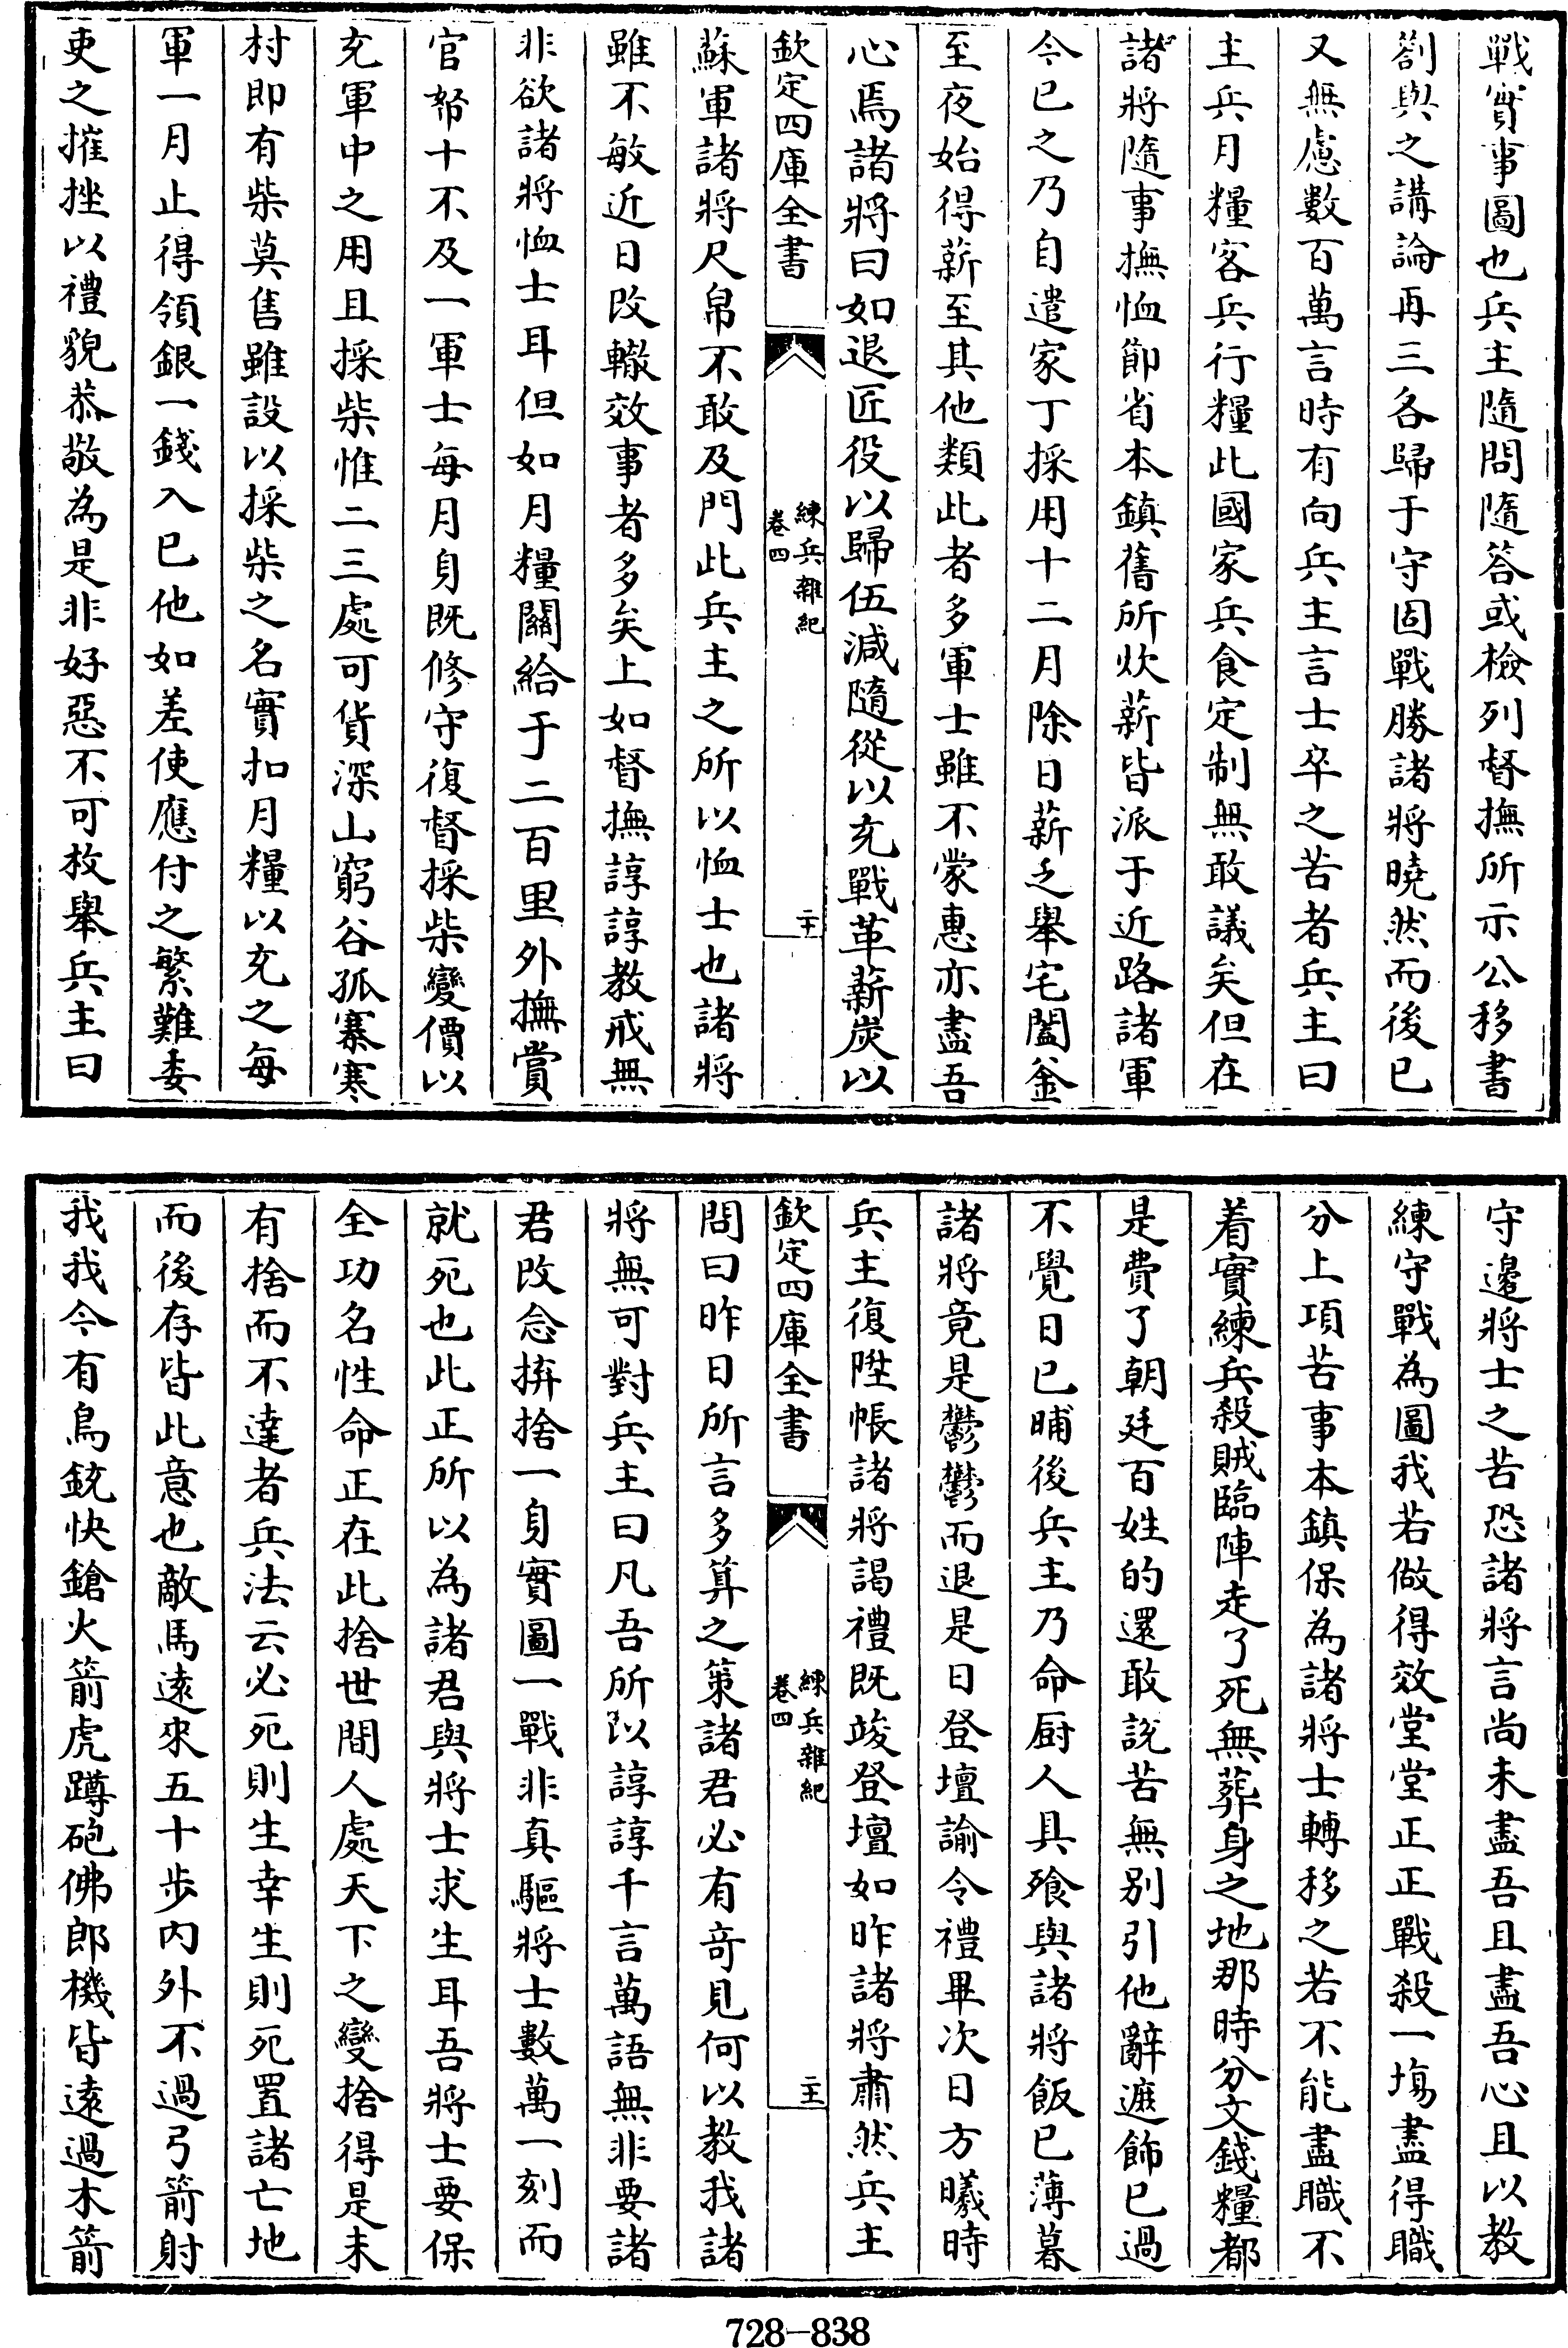 戰實事圖也兵主隨問隨答或檢列督撫所示公移書
劄與之講論再三各歸于守固戰勝諸將曉然而後已
又無慮數百萬言時有向兵主言士卒之苦者兵主曰
主兵月糧客兵行糧此國家兵食定制無敢議矣但在
諸將隨事撫恤節省本鎮舊所炊薪皆派于近路諸軍
今已之乃自遣家丁採用十二月除日薪乏舉宅闔釡
至夜始得薪至其他類此者多軍士雖不蒙惠亦盡吾
心焉諸將曰如退匠役以歸伍減隨從以充戰革薪炭以
欽定四庫全書
練兵雜紀
卷四
二十
蘇軍諸將尺帛不敢及門此兵主之所以恤士也諸將
雖不敏近日改轍效事者多矣上如督撫諄諄教戒無
非欲諸將恤士耳但如月糧關給于二百里外撫賞
官帑十不及一軍士每月身既修守復督採柴變價以
充軍中之用且採柴惟二三處可貨深山窮谷孤寨寒
村即有柴莫售雖設以採柴之名實扣月糧以充之每
軍一月止得領銀一錢入已他如差使應付之繁難委
吏之摧挫以禮貌恭敬為是非好惡不可枚舉兵主曰
守邊將士之苦恐諸將言尚未盡吾且盡吾心且以教
練守戰為圖我若做得效堂堂正正戰殺一塲盡得職
分上項苦事本鎮保為諸將士轉移之若不能盡職不
着實練兵殺賊臨陣走了死無葬身之地那時分文錢糧都
是費了朝廷百姓的還敢說苦無別引他辭遮飾已過
不覺日已晡後兵主乃命厨人具飱與諸將飯已薄暮
諸將竟是鬱鬱而退是日登壇諭令禮畢次日方曦時
兵主復陞帳諸將謁禮既竣登壇如昨諸將肅然兵主
欽定四庫全書
練兵雜紀
卷四
二十一
問曰昨日所言多算之策諸君必有竒見何以教我諸
將無可對兵主曰凡吾所以諄諄千言萬語無非要諸
君改念捹捨一身實圖一戰非真驅將士數萬一刻而
就死也此正所以為諸君與將士求生耳吾將士要保
全功名性命正在此捨世間人處天下之變捨得是未
有捨而不達者兵法云必死則生幸生則死置諸亡地
而後存皆此意也敵馬遠來五十步内外不過弓箭射
我我今有鳥銃快鎗火箭虎蹲砲佛郎機皆遠過木箭
728-838